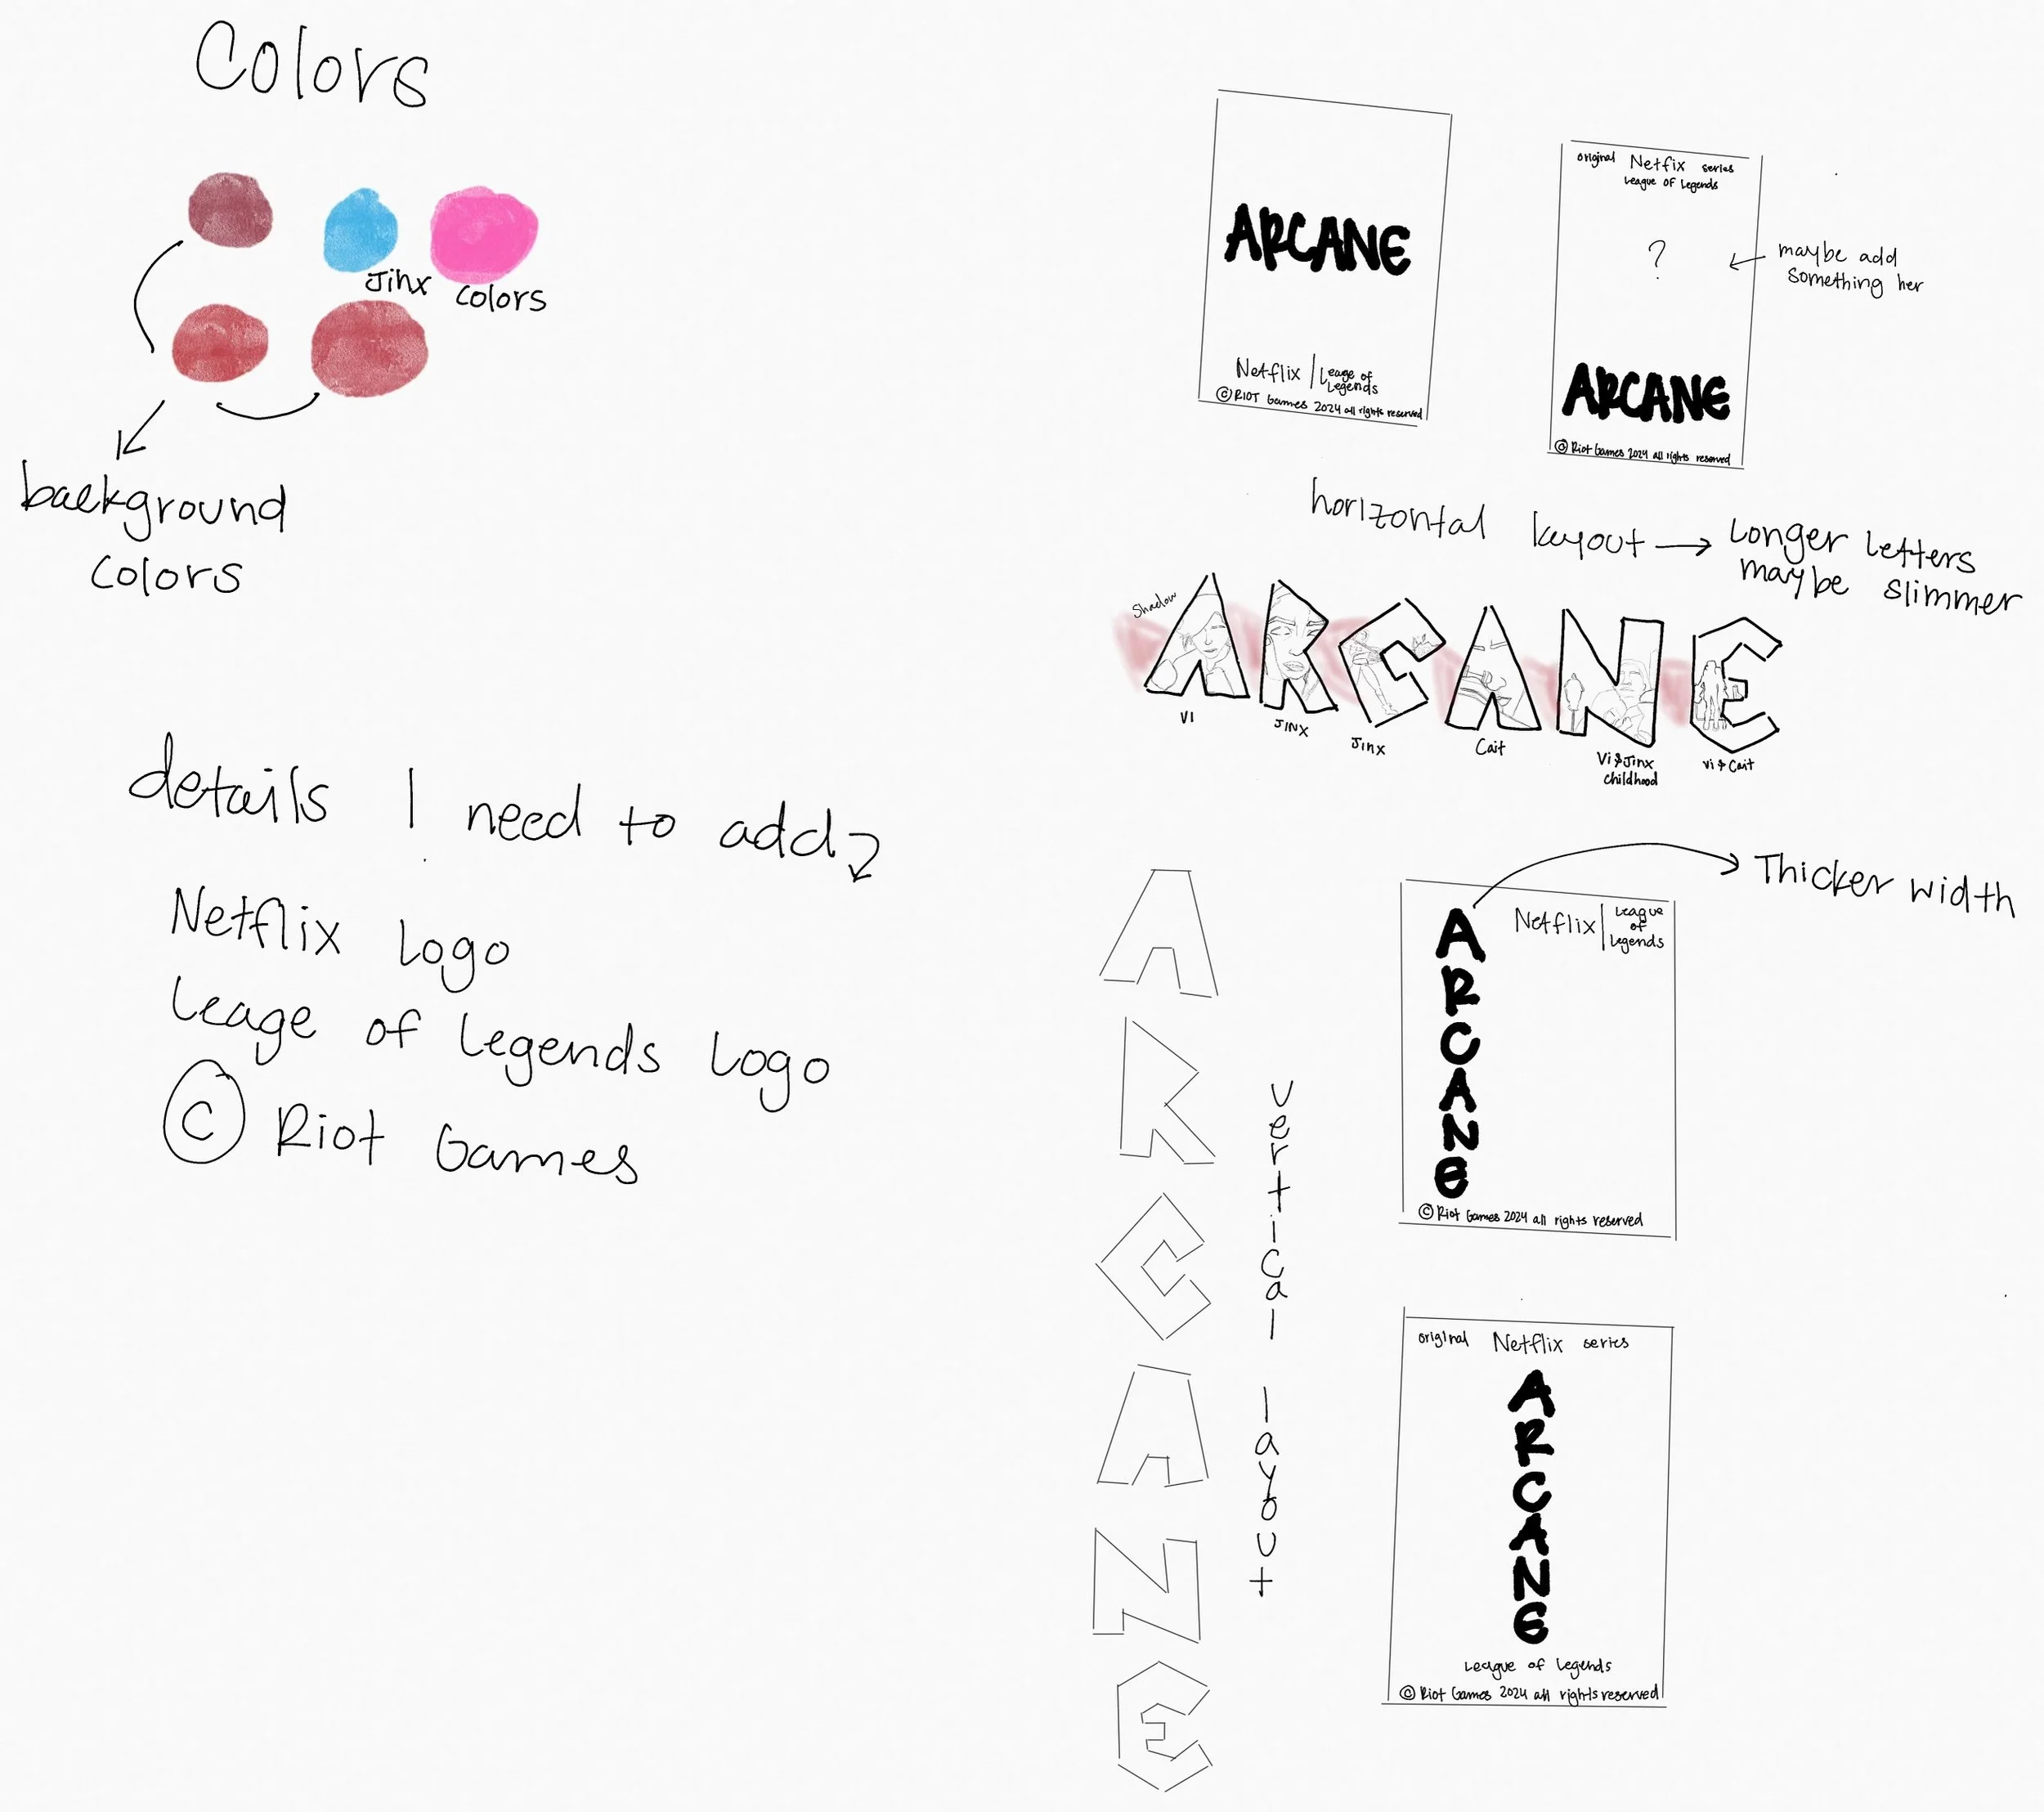 Colors
Jinx colors
background
colors
details I need to add
Netflix Logo
Leage of Legends Logo
© Riot Games
ARCANE
Netflix | Leage of
Legends
© RIOT Games 2024 all rights reserved
original Netfix series
League of Legends
?
maybe add
something her
ARCANE
© Riot Games 2024 all rights reserved
horizontal layout → Longer Letters
maybe slimmer
Shadow
ARCANE
VI
JINX
Jinx
Cait
Vi & Jinx
childhood
Vi & Cait
A
R
C
A
N
E
vertical layout
Thicker width
Netflix | League
of
Legends
A
R
C
A
N
E
© Riot Games 2024 all rights reserved
original Netflix series
A
R
C
A
N
E
League of Legends
© Riot Games 2024 all rights reserved